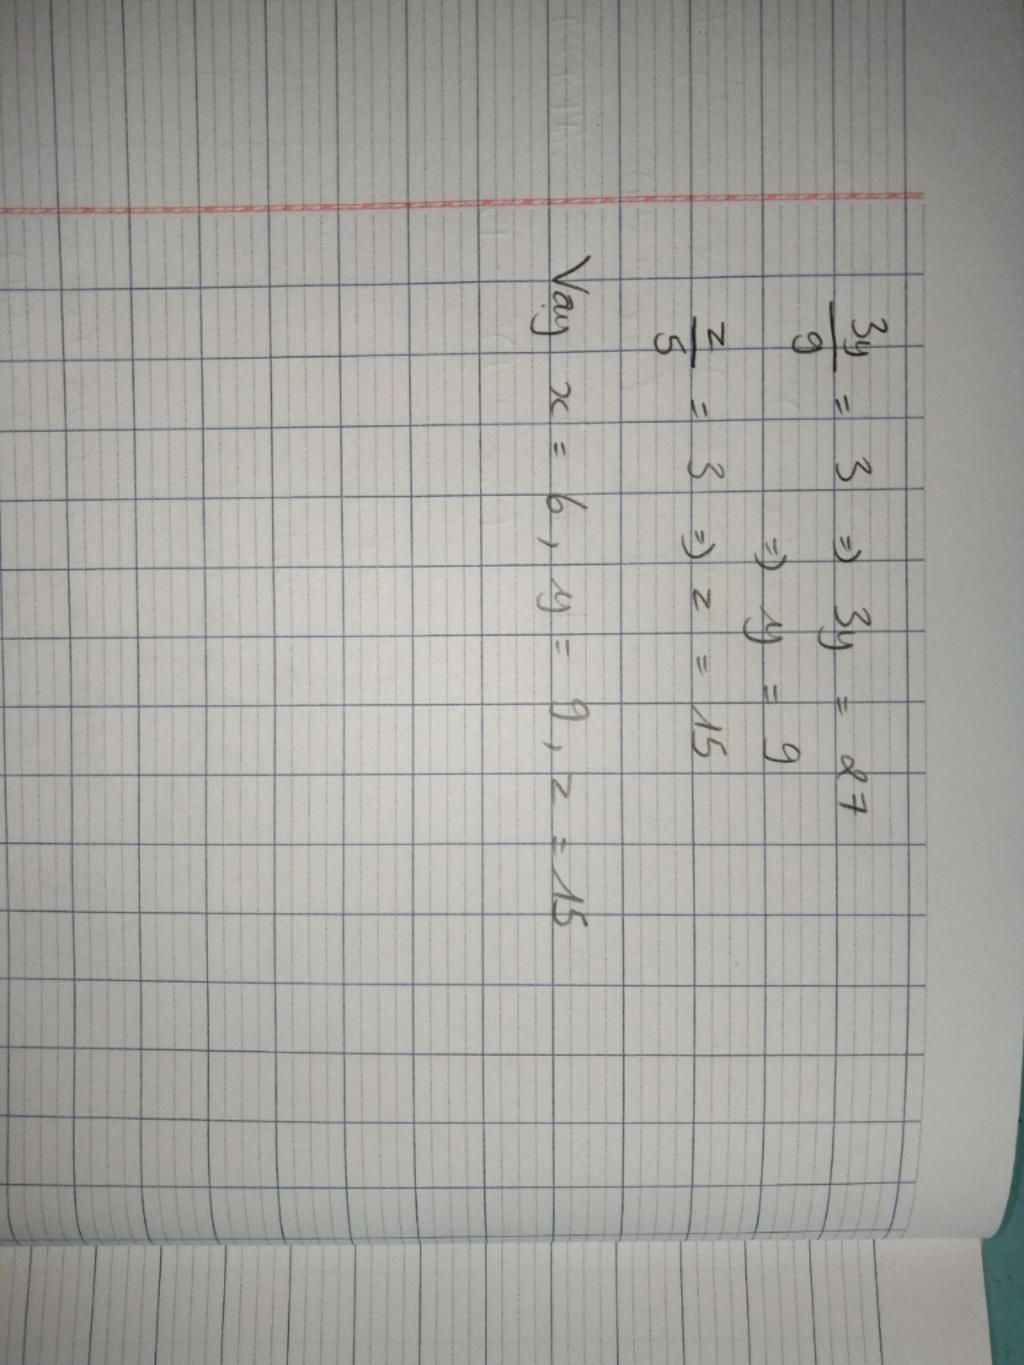 3y/9 = 3 => 3y = 27
=> y = 9
z/5 = 3 => z = 15
Vậy x = 6, y = 9, z = 15